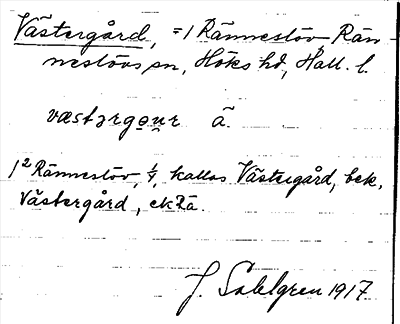 Västergård, =1 Rännestöv Rän-
neslövs sn, Höks hd, Hall. l.
västərgo̤u̯r ä.
1² Rännestöv, ¼, kallas Västergård, bek.
Västergård, ekRä.
J. Sahlgren 1917